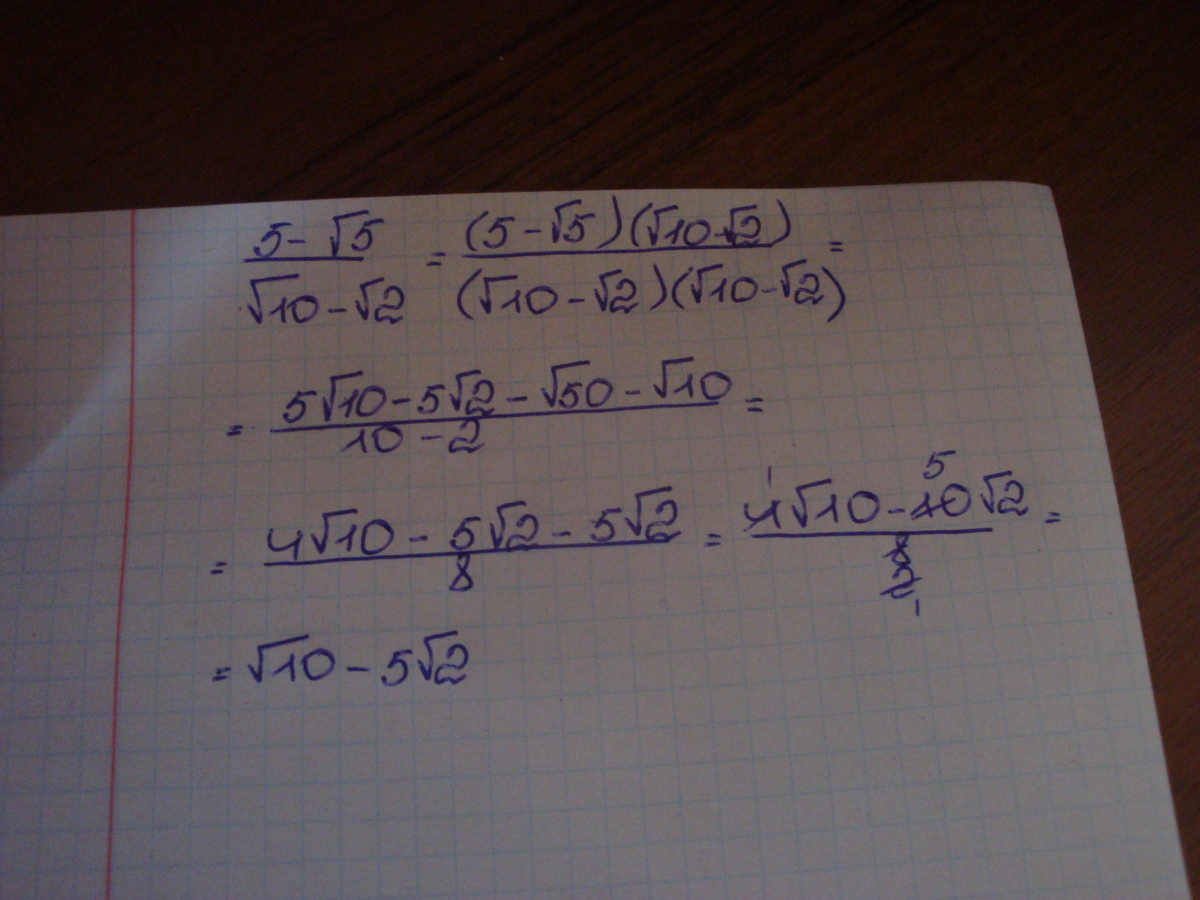 (5-√5)/(√10-√2) = ((5-√5)(√10-√2))/((√10-√2)(√10-√2)) =
= (5√10-5√2-√50-√10)/(10-2) =
= (4√10-5√2-5√2)/8 = (4√10-10√2)/8 =
= √10-5√2